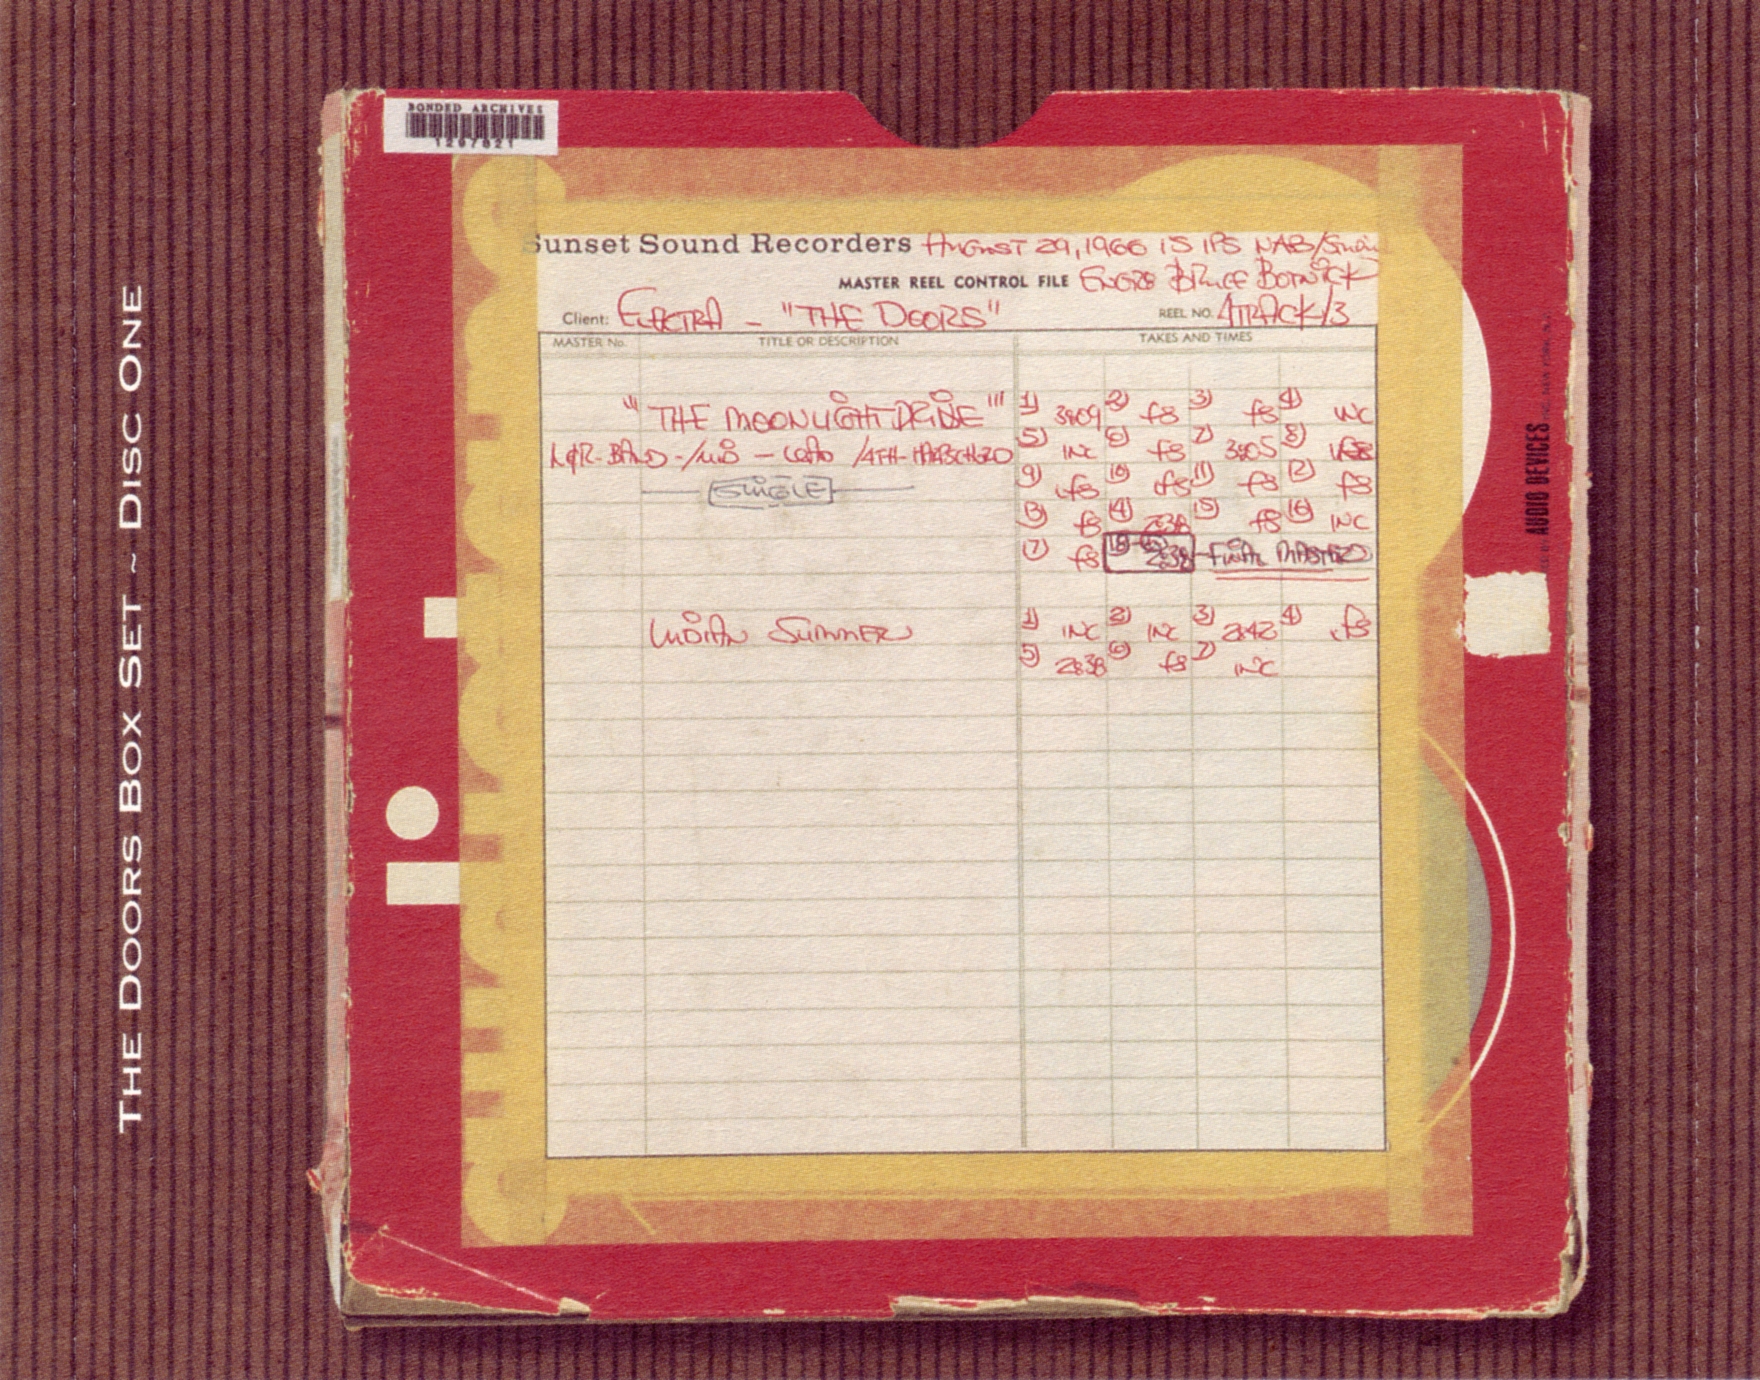 THE DOORS BOX SET ~ DISC ONE
BONDED ARCHIVES
1297821
Sunset Sound Recorders AUGUST 29, 1966 15 IPS NAB/
MASTER REEL CONTROL FILE ENGR: BRUCE BOTNICK
Client: ELECTRA - "THE DOORS" REEL NO. 4TRACK/3
MASTER No. TITLE OR DESCRIPTION TAKES AND TIMES
"THE MOONLIGHT DRIVE" 1) 3:09 2) fs 3) fs 4) INC
L&R-BAND- 5) INC 6) fs 7) 3:05 8)
SINGLE 9) fs 10) fs 11) fs 12) fs
13) fs 14) 2:38 15) fs 16) INC
17) fs 18) 2:38 - FINAL MASTER
INDIAN SUMMER 1) INC 2) INC 3) 2:42 4) fs
5) 2:38 6) fs 7) INC
AUDIO DEVICES